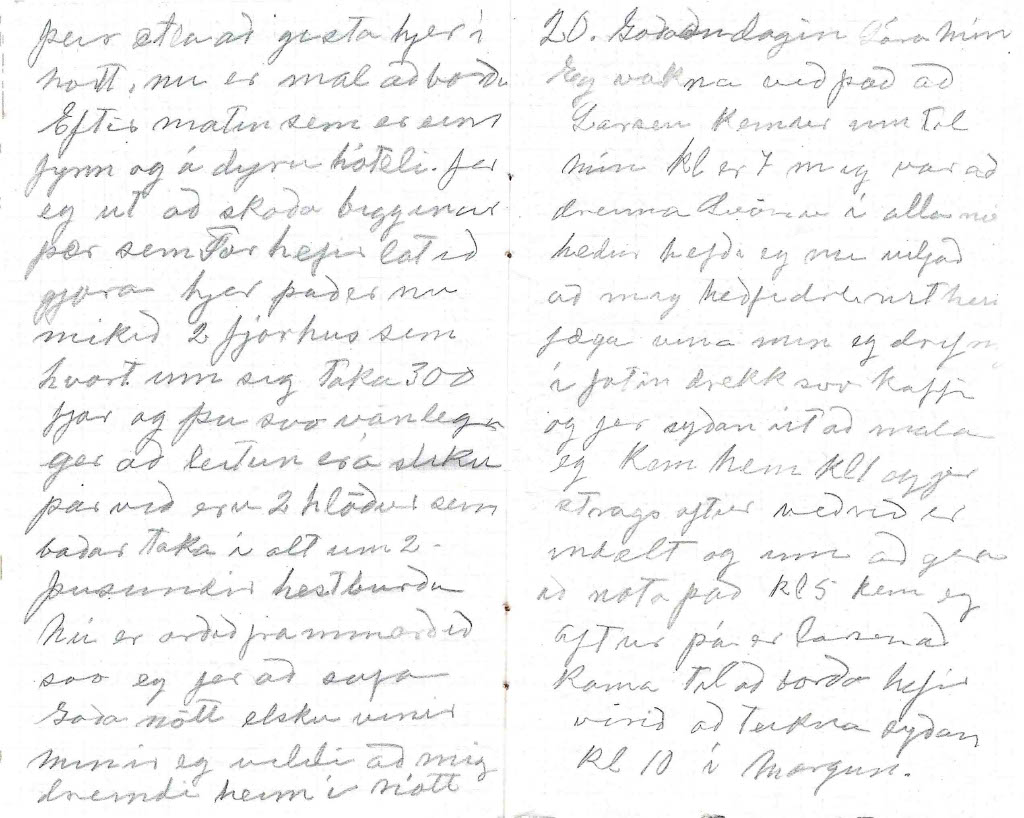 þeir ætla að gista hjer í
nott, nu er mal að borða
Eftir matin sem er eins
fynn og á dyru hóteli. fer
eg ut að skoða bigginar
þær sem Tor hefir latið
gjöra hjer það er nu
mikið 2 fjórhus sem
hvort um sig taka 300
fjár og þu svo vanlega
ger að leitun er á sliku
þar við eru 2 hlöður sem
baðar taka í alt um 2-
þusundir hestburða
Nú er orðið frammorðið
svo eg fer að sofa
Goða nótt elsku vinir
minir eg vildi að mig
dremdi heim i nótt
20. Goðan dagin Tóra min
Eg vakna við það að
Larsen kemur um til
min kl er 7 mig var að
dreuma í alla no
heður hefða eg nu viljað
að mig hefði
fæga vina min eg drifn
i fotin drekk svo kaffi
og fer syðan út að mala
eg kem hem kl 1 og fer
strags aftur veðrið er
indælt og um að gera
að nota það kl 5 kem eg
aftur þá er larsen að
koma til að borða hefir
virið að teikna syðan
kl 10 í morgun.